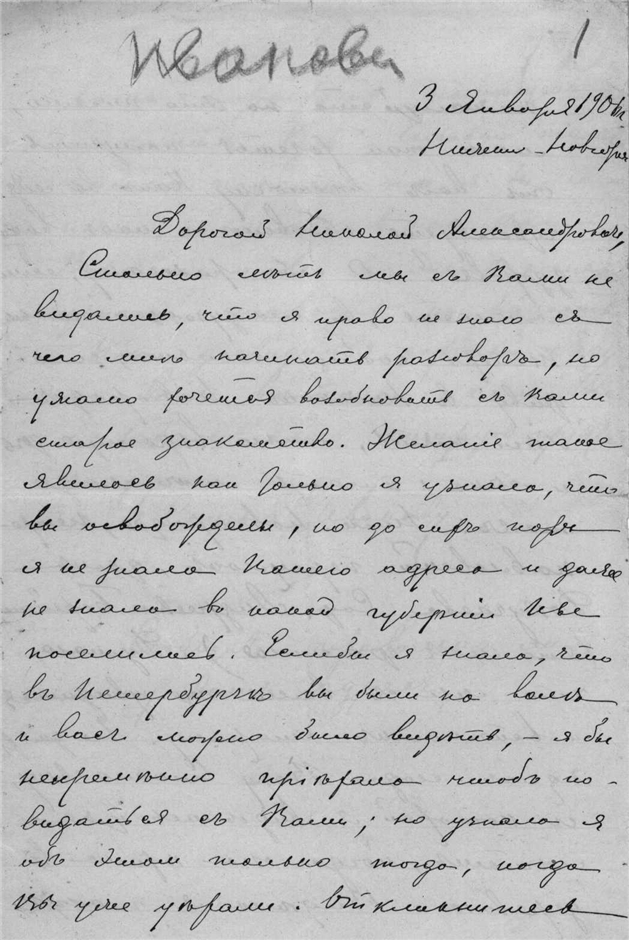 Ивановы
1
3 Января 190
Нижний-Новгород
Дорогой Николай Александровичъ,
Столько лѣтъ мы съ Вами не
видались, что я право не знаю съ
чего мнѣ начинать разговоръ, но
ужасно хочется возобновить съ Вами
старое знакомство. Желаніе такое
явилось какъ только я узнала, что
вы освобождены, но до сихъ поръ
я не знала Вашего адреса и даже
не знала въ какой губерніи Вы
поселились. Еслибы я знала, что
въ Петербургѣ вы были на волѣ
и васъ можно было видѣть, – я бы
непремѣнно пріѣхала чтобъ по-
видаться съ Вами; но узнала я
объ этомъ только тогда, когда
Вы уже уѣхали. Откликнитесь